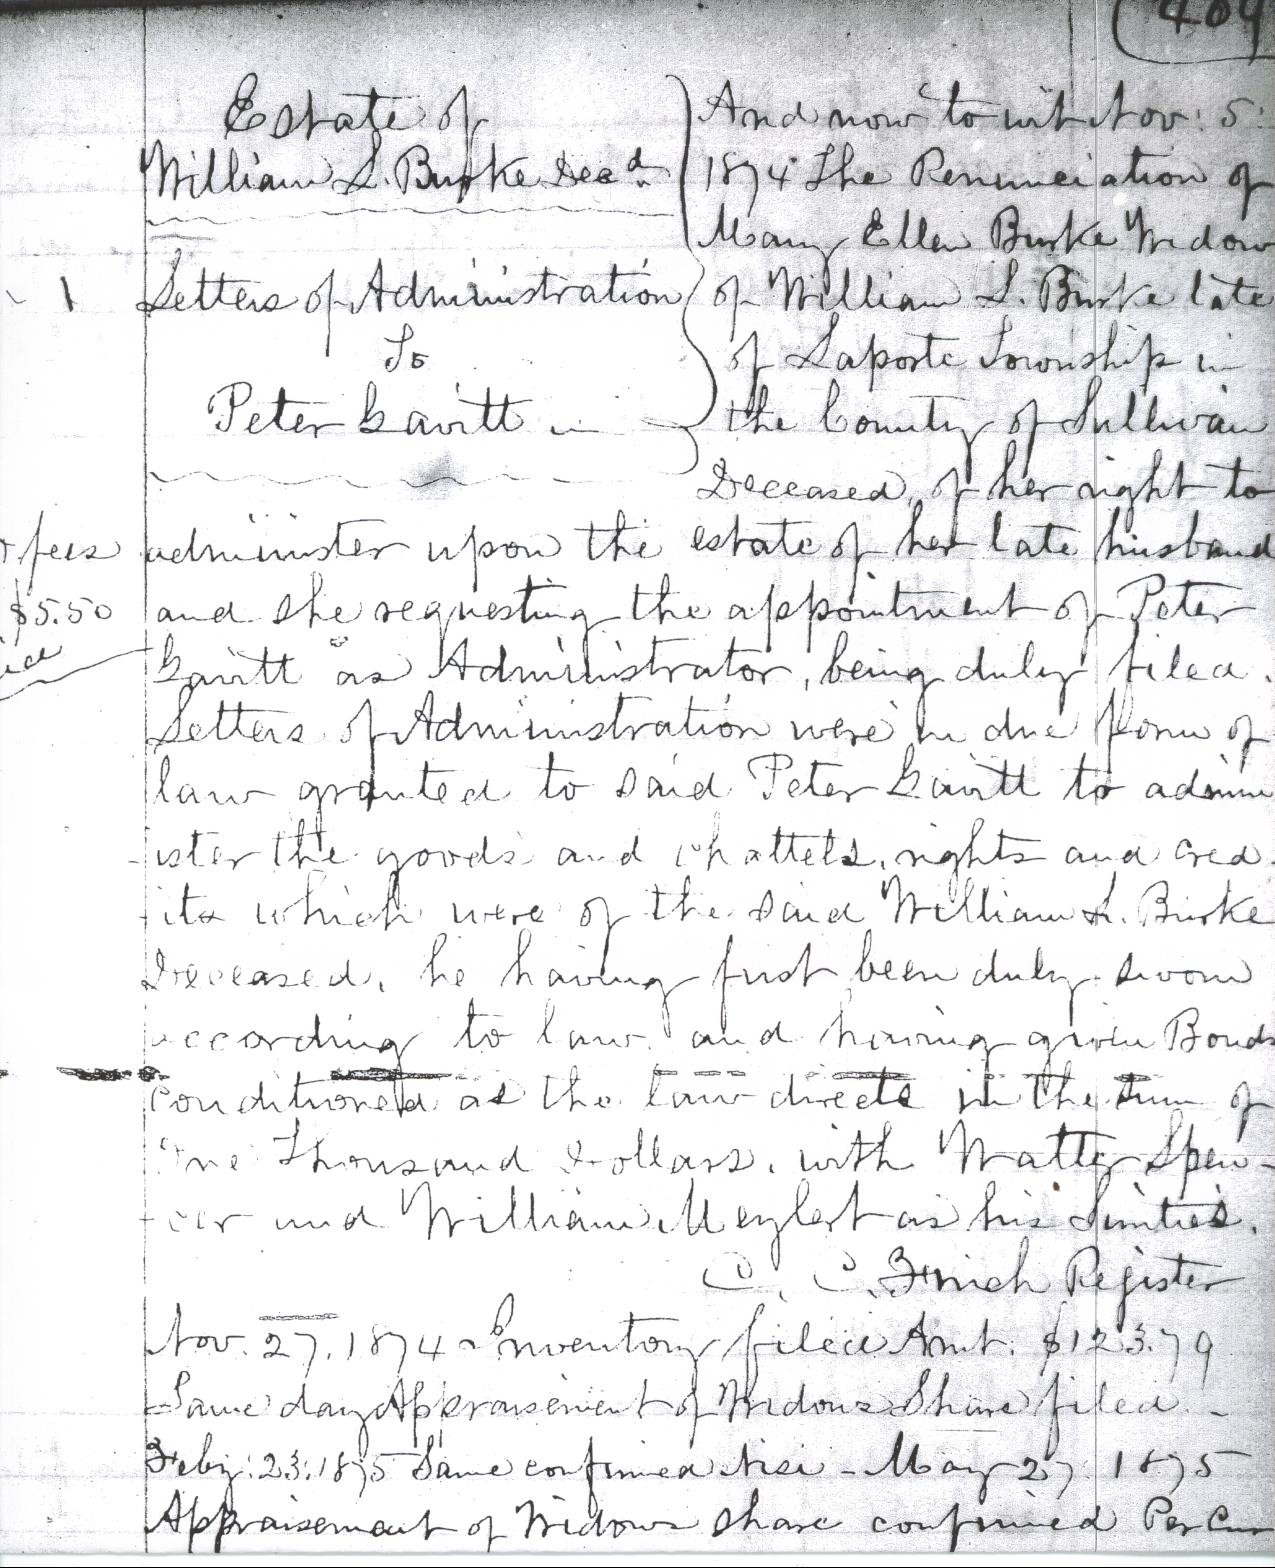 404
Estate of
William S. Burke Decd.
1 Letters of Administration
To
Peter Gavitt
And now to wit Nov: 5:
1874 The Renunciation of
Mary Ellen Burke Widow
of William S. Burke late
of Laporte Township in
the County of Sullivan
Deceased, of her right to
fees administer upon the estate of her late husband
$5.50 and she requesting the appointment of Peter
Gavitt as Administrator, being duly filed.
Letters of Administration were in due form of
law granted to said Peter Gavitt to admin
ister the goods and chattels, rights and cred
its which were of the said William S. Burke
Deceased, he having first been duly sworn
according to law, and having given Bonds
conditioned as the law directs in the sum of
One Thousand Dollars, with Walter Spen-
cer and William Meylert as his Sureties.
Register
Nov. 27. 1874 Inventory filed Amt. $123.79
Same day Appraisement of Widows Share filed -
Feby. 23. 1875 Same confirmed Nisi - May 27. 1875
Appraisement of Widows share confirmed Per Cur